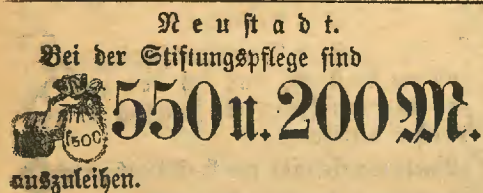 Neustadt.
Bei der Stiftungspflege sind
500
550 u. 200 M.
auszuleihen.